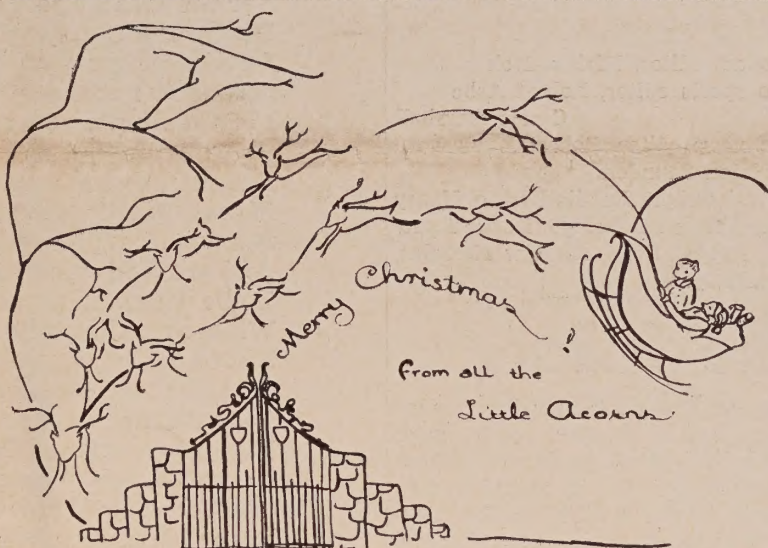 Merry Christmas !
from all the
Little Acorns